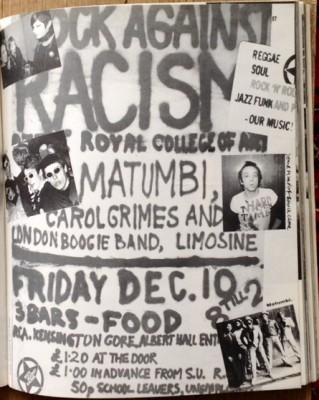 ROCK AGAINST
RACISM
REGGAE
SOUL
ROCK 'N' ROLL
JAZZ FUNK AND P
- OUR MUSIC!
ROYAL COLLEGE OF ART
MATUMBI,
CAROL GRIMES AND
LONDON BOOGIE BAND, LIMOSINE
HARD
FRIDAY DEC. 10
8 TILL 2
3 BARS - FOOD
RCA, KENSINGTON GORE, ALBERT HALL ENT
Matumbi.
£1·20 AT THE DOOR
£1·00 IN ADVANCE FROM S.U. R.
50p SCHOOL LEAVERS, UNEMPL